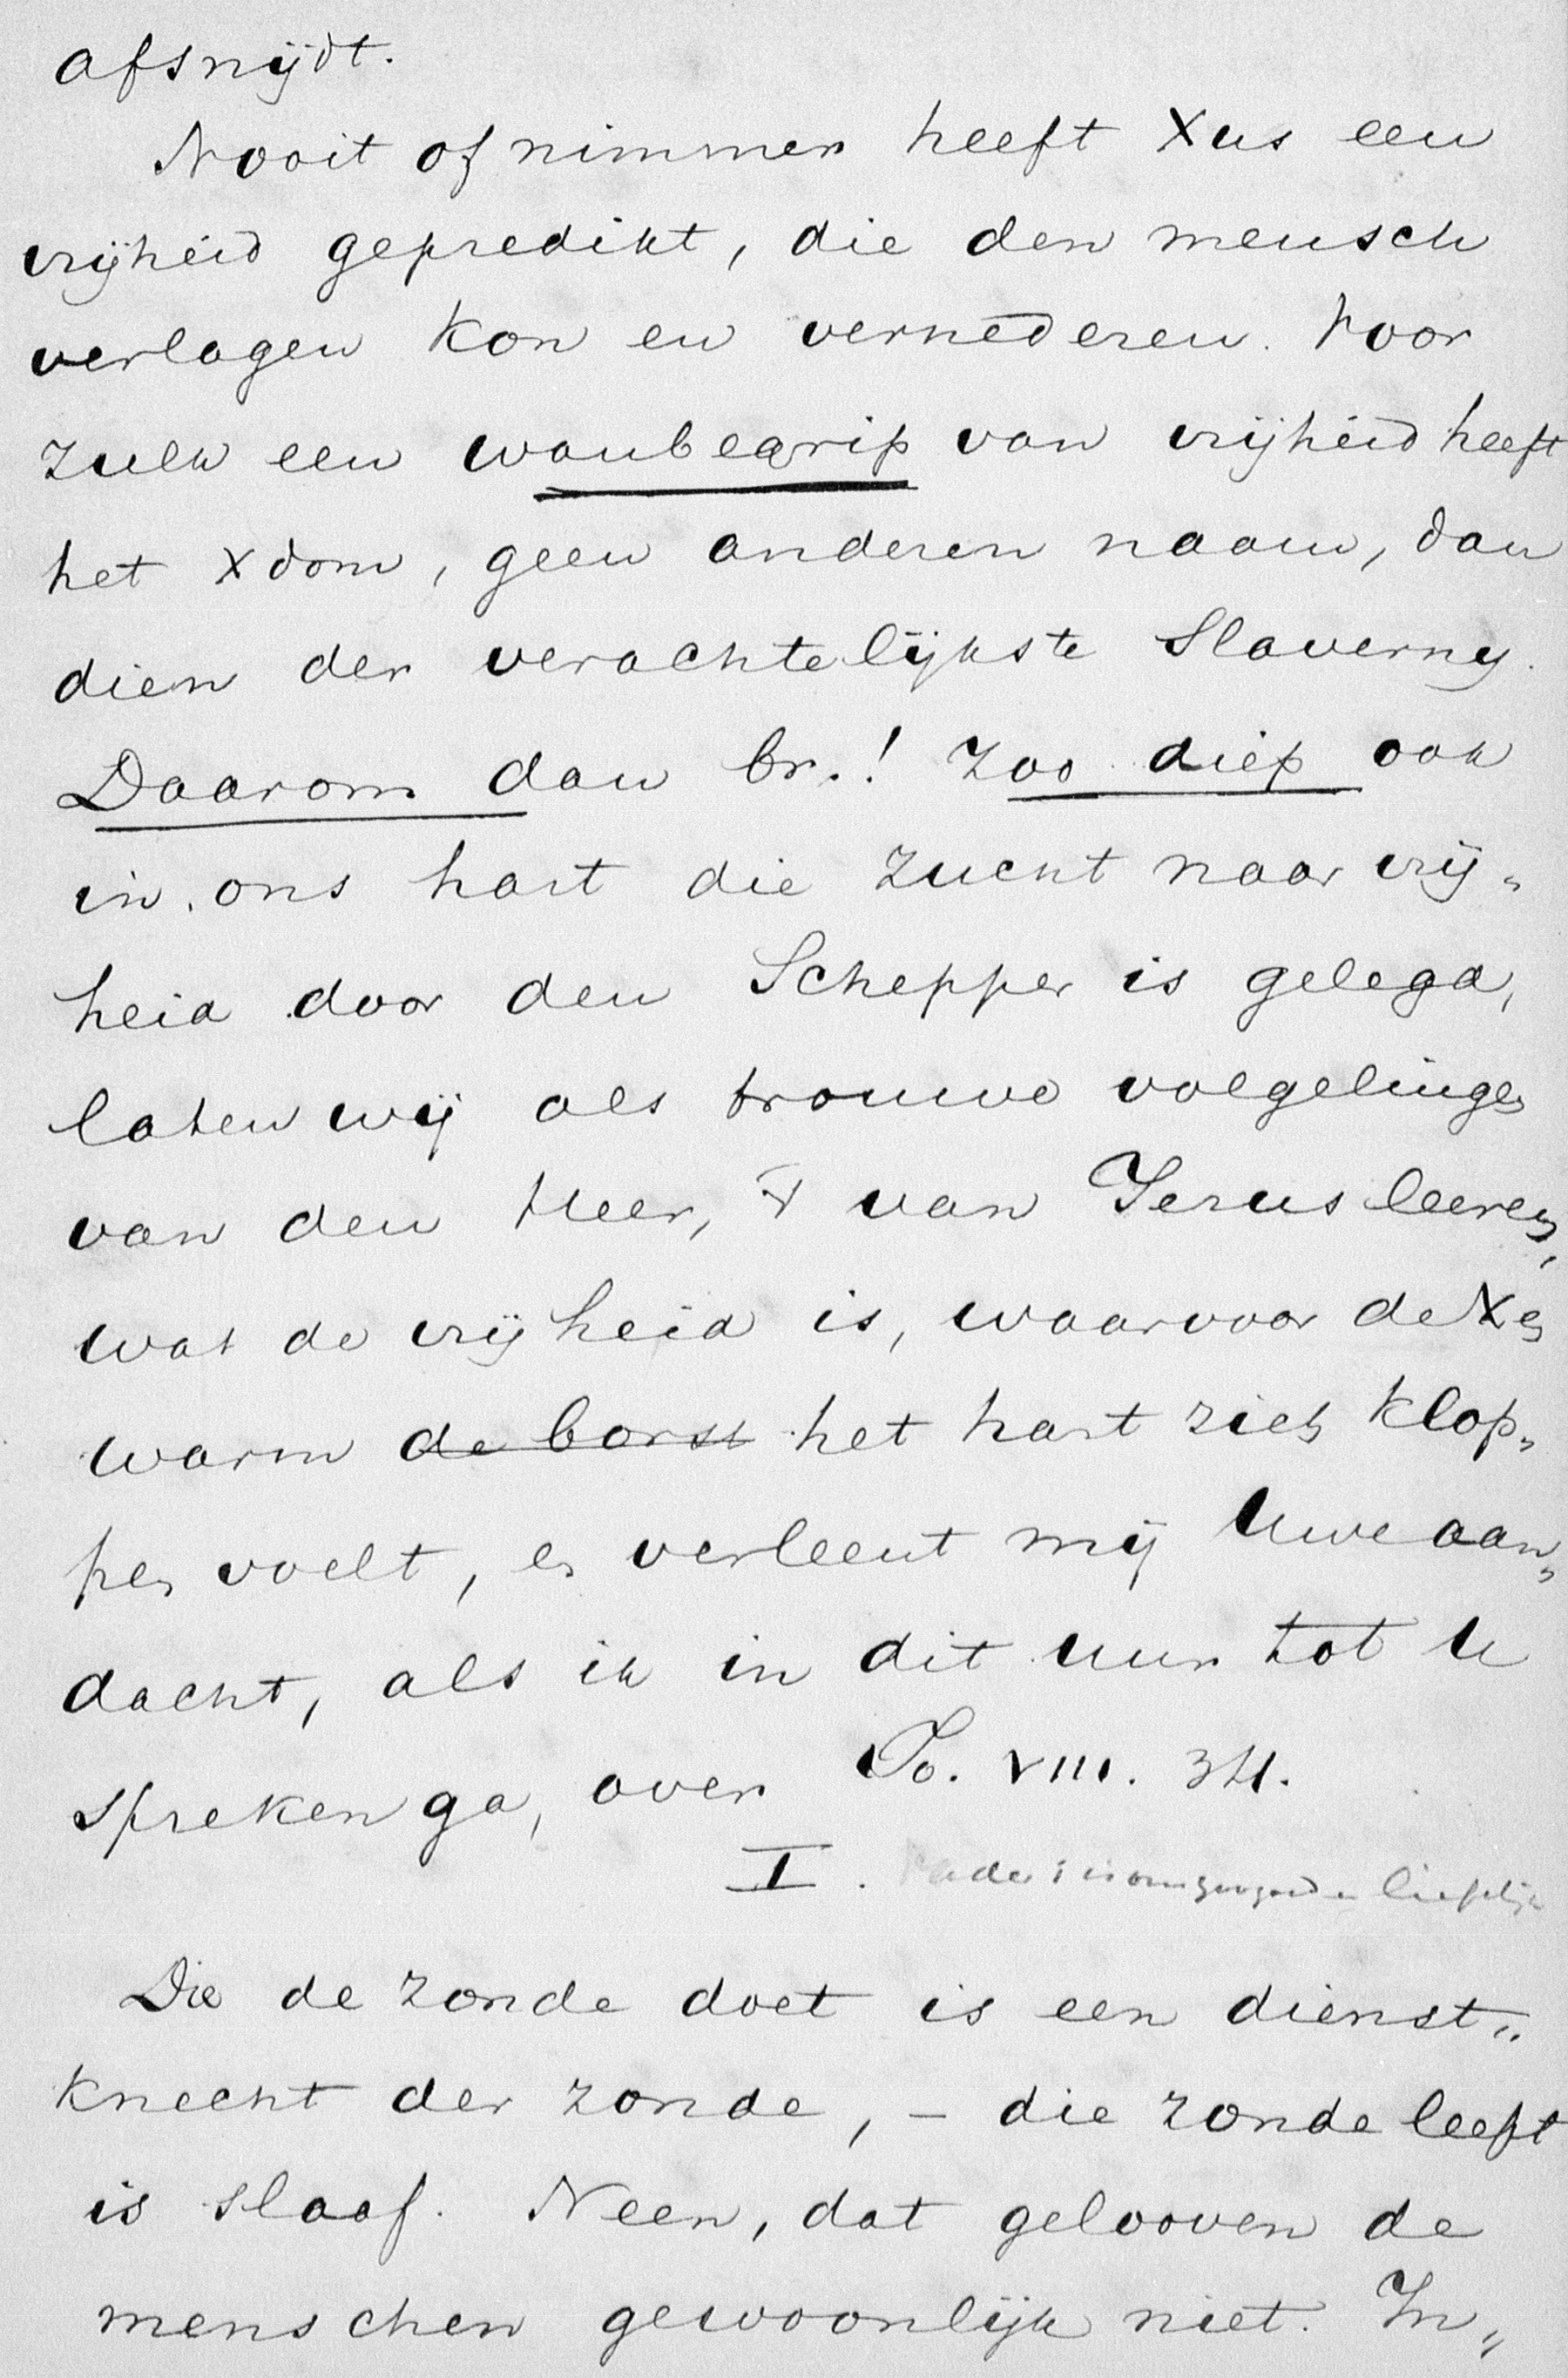 afsnijdt.
Nooit of nimmer heeft Xus een
vrijheid gepredikt, die den mensch
verlagen kon en vernederen. Voor
zulk een wanbegrip van vrijheid heeft
het Xdom, geen anderen naam, dan
dien der verachtelijkste Slaverny.
Daarom dan br.! Zoo diep ook
in ons hart die zucht naar vrij„
heid door den Schepper is gelegd,
laten wij als trouwe volgelingen
van den Heer, van Jezus leeren,
wat de vrijheid is, waarvoor de Xen
warm de borst het hart zich klop„
pen voelt, en verleent mij Uwe aan„
dacht, als ik in dit uur tot U
spreken ga, over Jo. VIII. 34.
I.
Die de zonde doet is een dienst„
knecht der zonde, – die zonde leeft
is slaaf. Neen, dat gelooven de
menschen gewoonlijk niet. In„